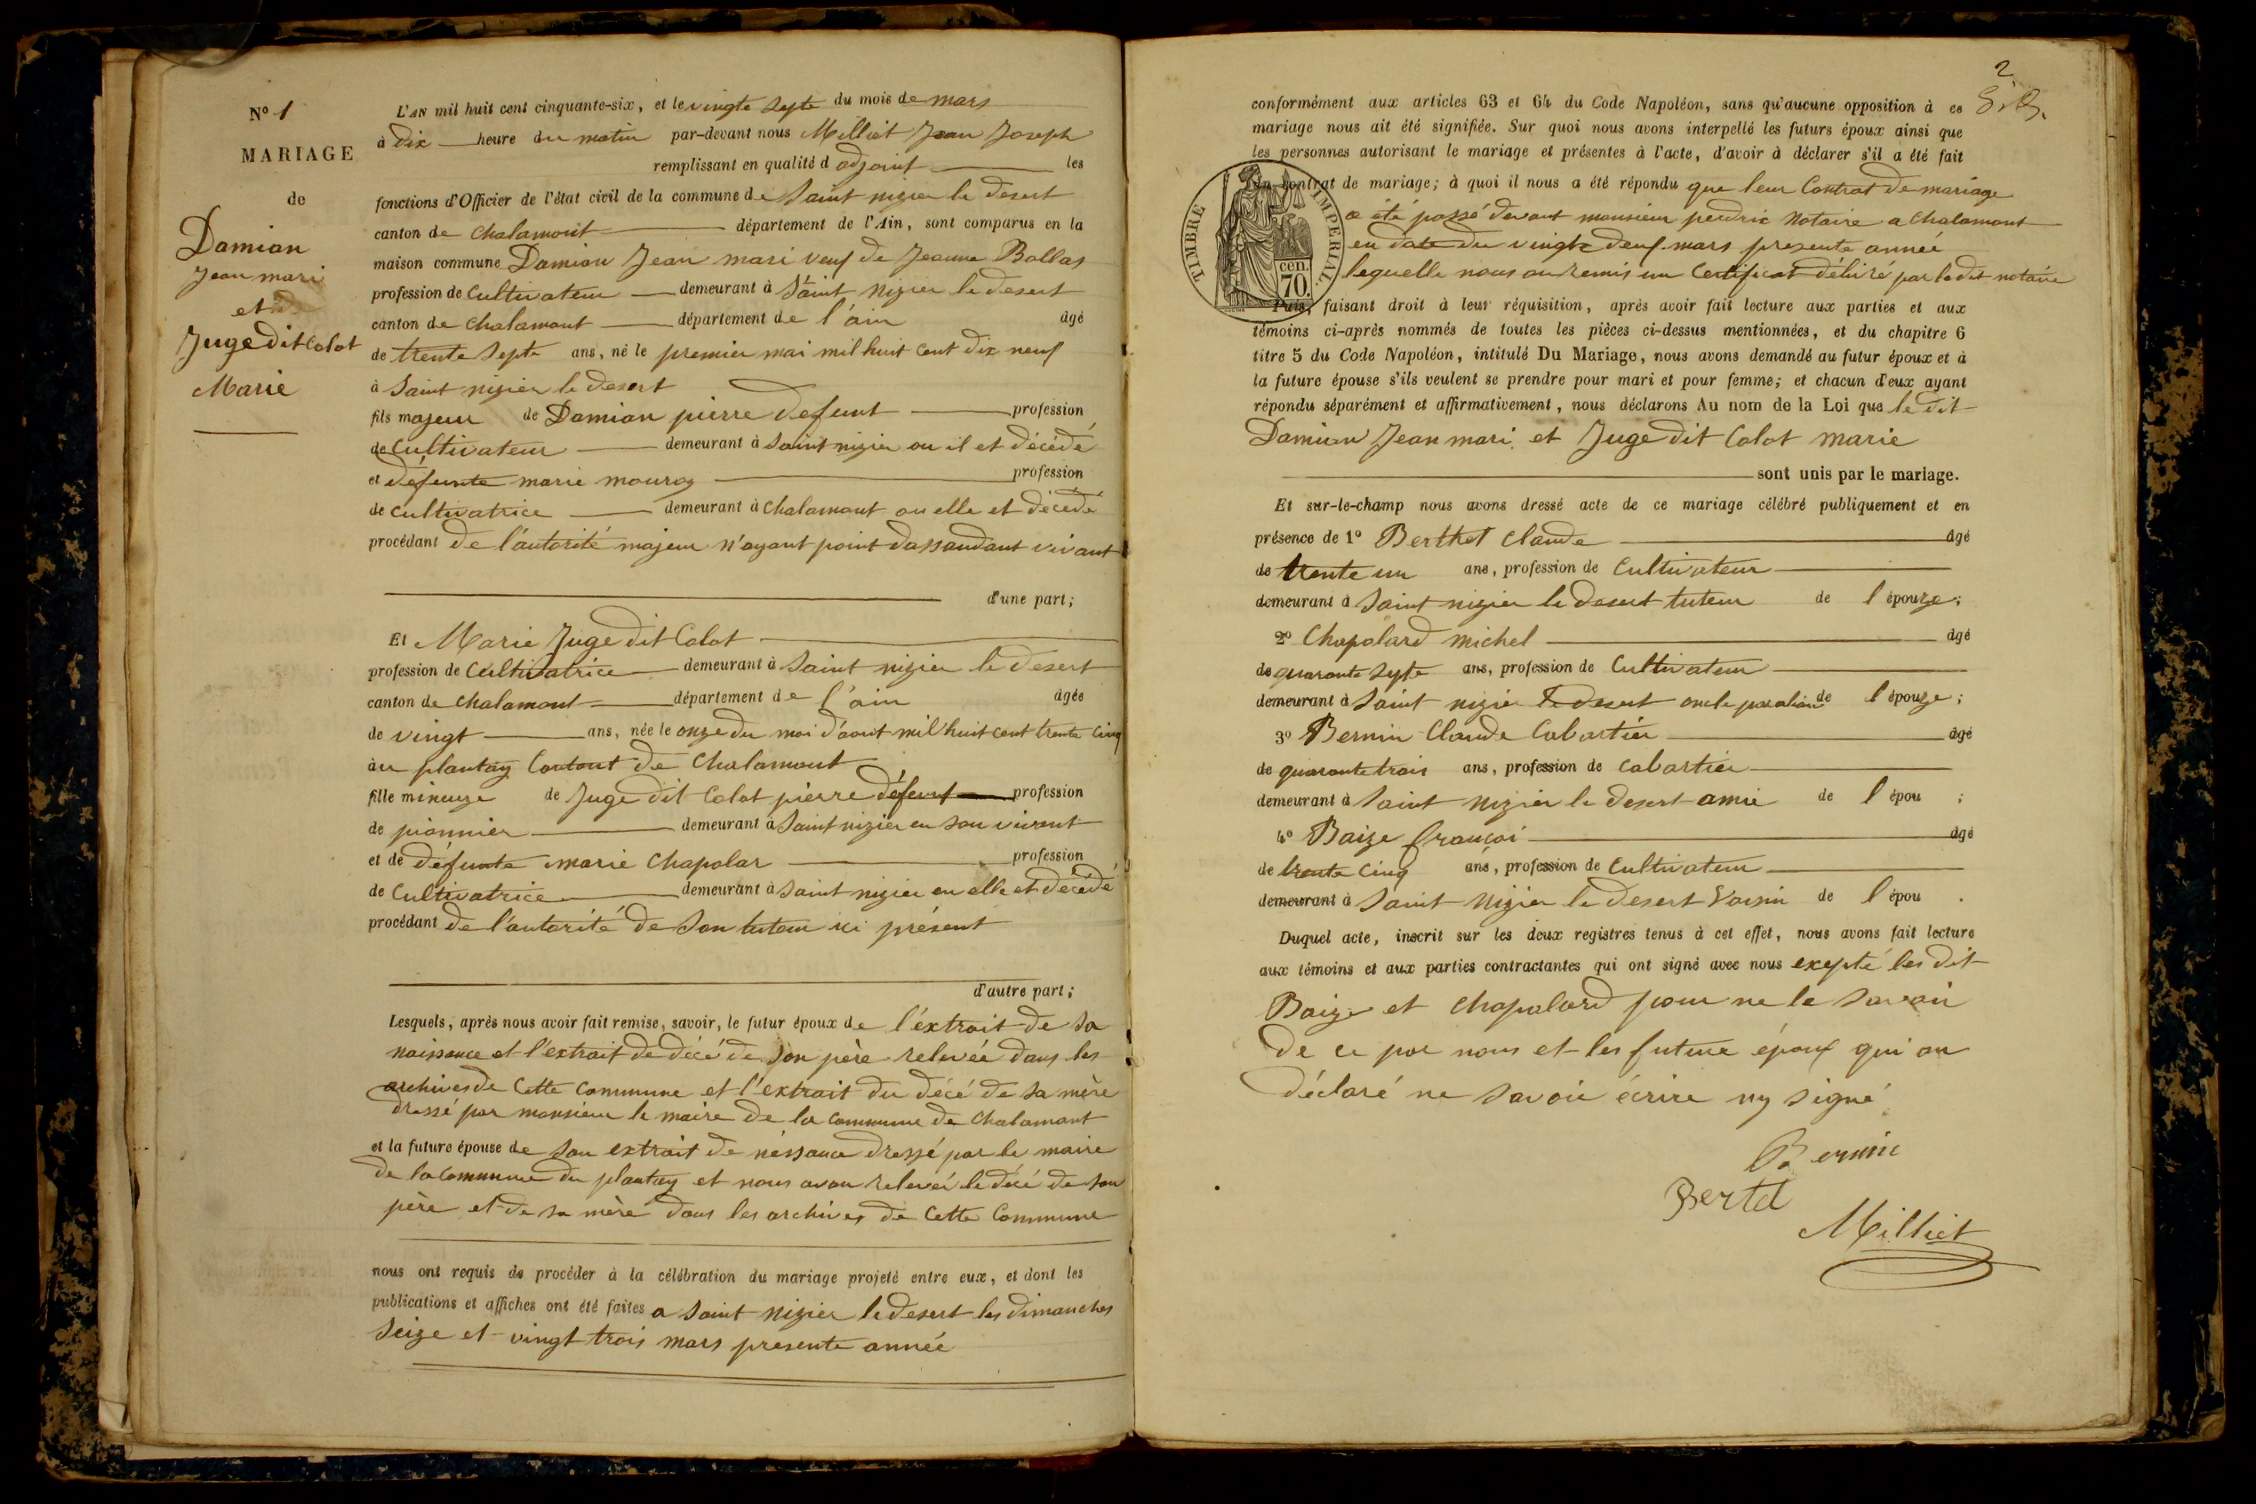 N° 1
MARIAGE
de
Damian
Jean mari
et
Juge dit Colot
Marie
L'AN mil huit cent cinquante-six, et le vingte septe du mois de mars
à dix heure du matin par-devant nous Milliet Jean Joseph
remplissant en qualité d adjoint les
fonctions d'Officier de l'état civil de la commune de Saint nizier le desert
canton de Chalamont département de l'Ain, sont comparus en la
maison commune Damian Jean mari veuf de Jeanne Ballas
profession de Cultivateur demeurant à Saint nizier le desert
canton de Chalamont département de l'ain âgé
de trente septe ans, né le premier mai mil huit cent dix neuf
à Saint nizier le desert
fils majeur de Damian pierre defunt profession
de Cultivateur demeurant à Saint nizier ou il et décédé
et défunte marie mouroz profession
de Cultivatrice demeurant à Chalamont ou elle et décédé
procédant de l'autorité majeur n'ayant point dassandant vivant
d'une part;
Et Marie Juge dit Colot
profession de Cultivatrice demeurant à Saint nizier le desert
canton de Chalamont département de l'ain âgée
de vingt ans, née le onze du moi d'aout mil huit cent trente cinq
àu plantay Contont de Chalamont
fille mineuze de Juge dit Colot pierre défunt profession
de pionnier demeurant à Saint nizier en son vivant
et de défunte marie Chapolar profession
de Cultivatrice demeurant à Saint nizier ou elle et décédé
procédant de l'autorité de Son tuteur ici présent
d'autre part;
Lesquels, après nous avoir fait remise, savoir, le futur époux de l'éxtrait de sa
naissance et l'extrait de décé de son père relevée dans les
archives de Cette Commune et l'extrait du décé de sa mère
dressé par monsieur le maire de la Commune de Chalamont
et la future épouse de son extrait de néssance dressé par le maire
de la Commune du plantay et nous avon relevéi le décé de son
père et de sa mère dans les archives de Cette Commune
nous ont requis de procéder à la célébration du mariage projeté entre eux, et dont les
publications et affiches ont été faites a Saint nizier le desert les dimanches
Seize et vingt trois mars presente année
2
conformément aux articles 63 et 64 du Code Napoléon, sans qu'aucune opposition à ce
mariage nous ait été signifiée. Sur quoi nous avons interpellé les futurs époux ainsi que
les personnes autorisant le mariage et présentes à l'acte, d'avoir à déclarer s'il a été fait
un contrat de mariage; à quoi il nous a été répondu que leur Contrat de mariage
a été passé devant monsieur perdrix Notaire a Chalamont
en date du vingte deux mars presente année
lequelle nous on remis un Certificat délivré par le dit notaire
TIMBRE IMPERIAL
cen.
70.
Puis, faisant droit à leur réquisition, après avoir fait lecture aux parties et aux
témoins ci-après nommés de toutes les pièces ci-dessus mentionnées, et du chapitre 6
titre 5 du Code Napoléon, intitulé Du Mariage, nous avons demandé au futur époux et à
la future épouse s'ils veulent se prendre pour mari et pour femme; et chacun d'eux ayant
répondu séparément et affirmativement, nous déclarons Au nom de la Loi que le dit
Damian Jean mari et Juge dit Colot marie
sont unis par le mariage.
Et sur-le-champ nous avons dressé acte de ce mariage célébré publiquement et en
présence de 1° Berthet Claude âgé
de trente un ans, profession de Cultivateur
demeurant à Saint nizier le desert tuteur de l'épouze;
2° Chapolard michel âgé
de quarante septe ans, profession de Cultivateur
demeurant à Saint nizier le desert oncle de l'épouze;
3° Bernin Claude Cabartier âgé
de quarante trois ans, profession de Cabartier
demeurant à Saint nizier le desert amie de l'épou ;
4° Baize françoi âgé
de trente Cinq ans, profession de Cultivateur
demeurant à Saint nizier le desert Voisin de l'épou .
Duquel acte, inscrit sur les deux registres tenus à cet effet, nous avons fait lecture
aux témoins et aux parties contractantes qui ont signé avec nous exepté les dit
Baize et Chapolard pour ne le savoir
de ce par nous et les future épouf qui on
déclaré ne savoir écrire ny signé
Bernin
Bertet
Milliet